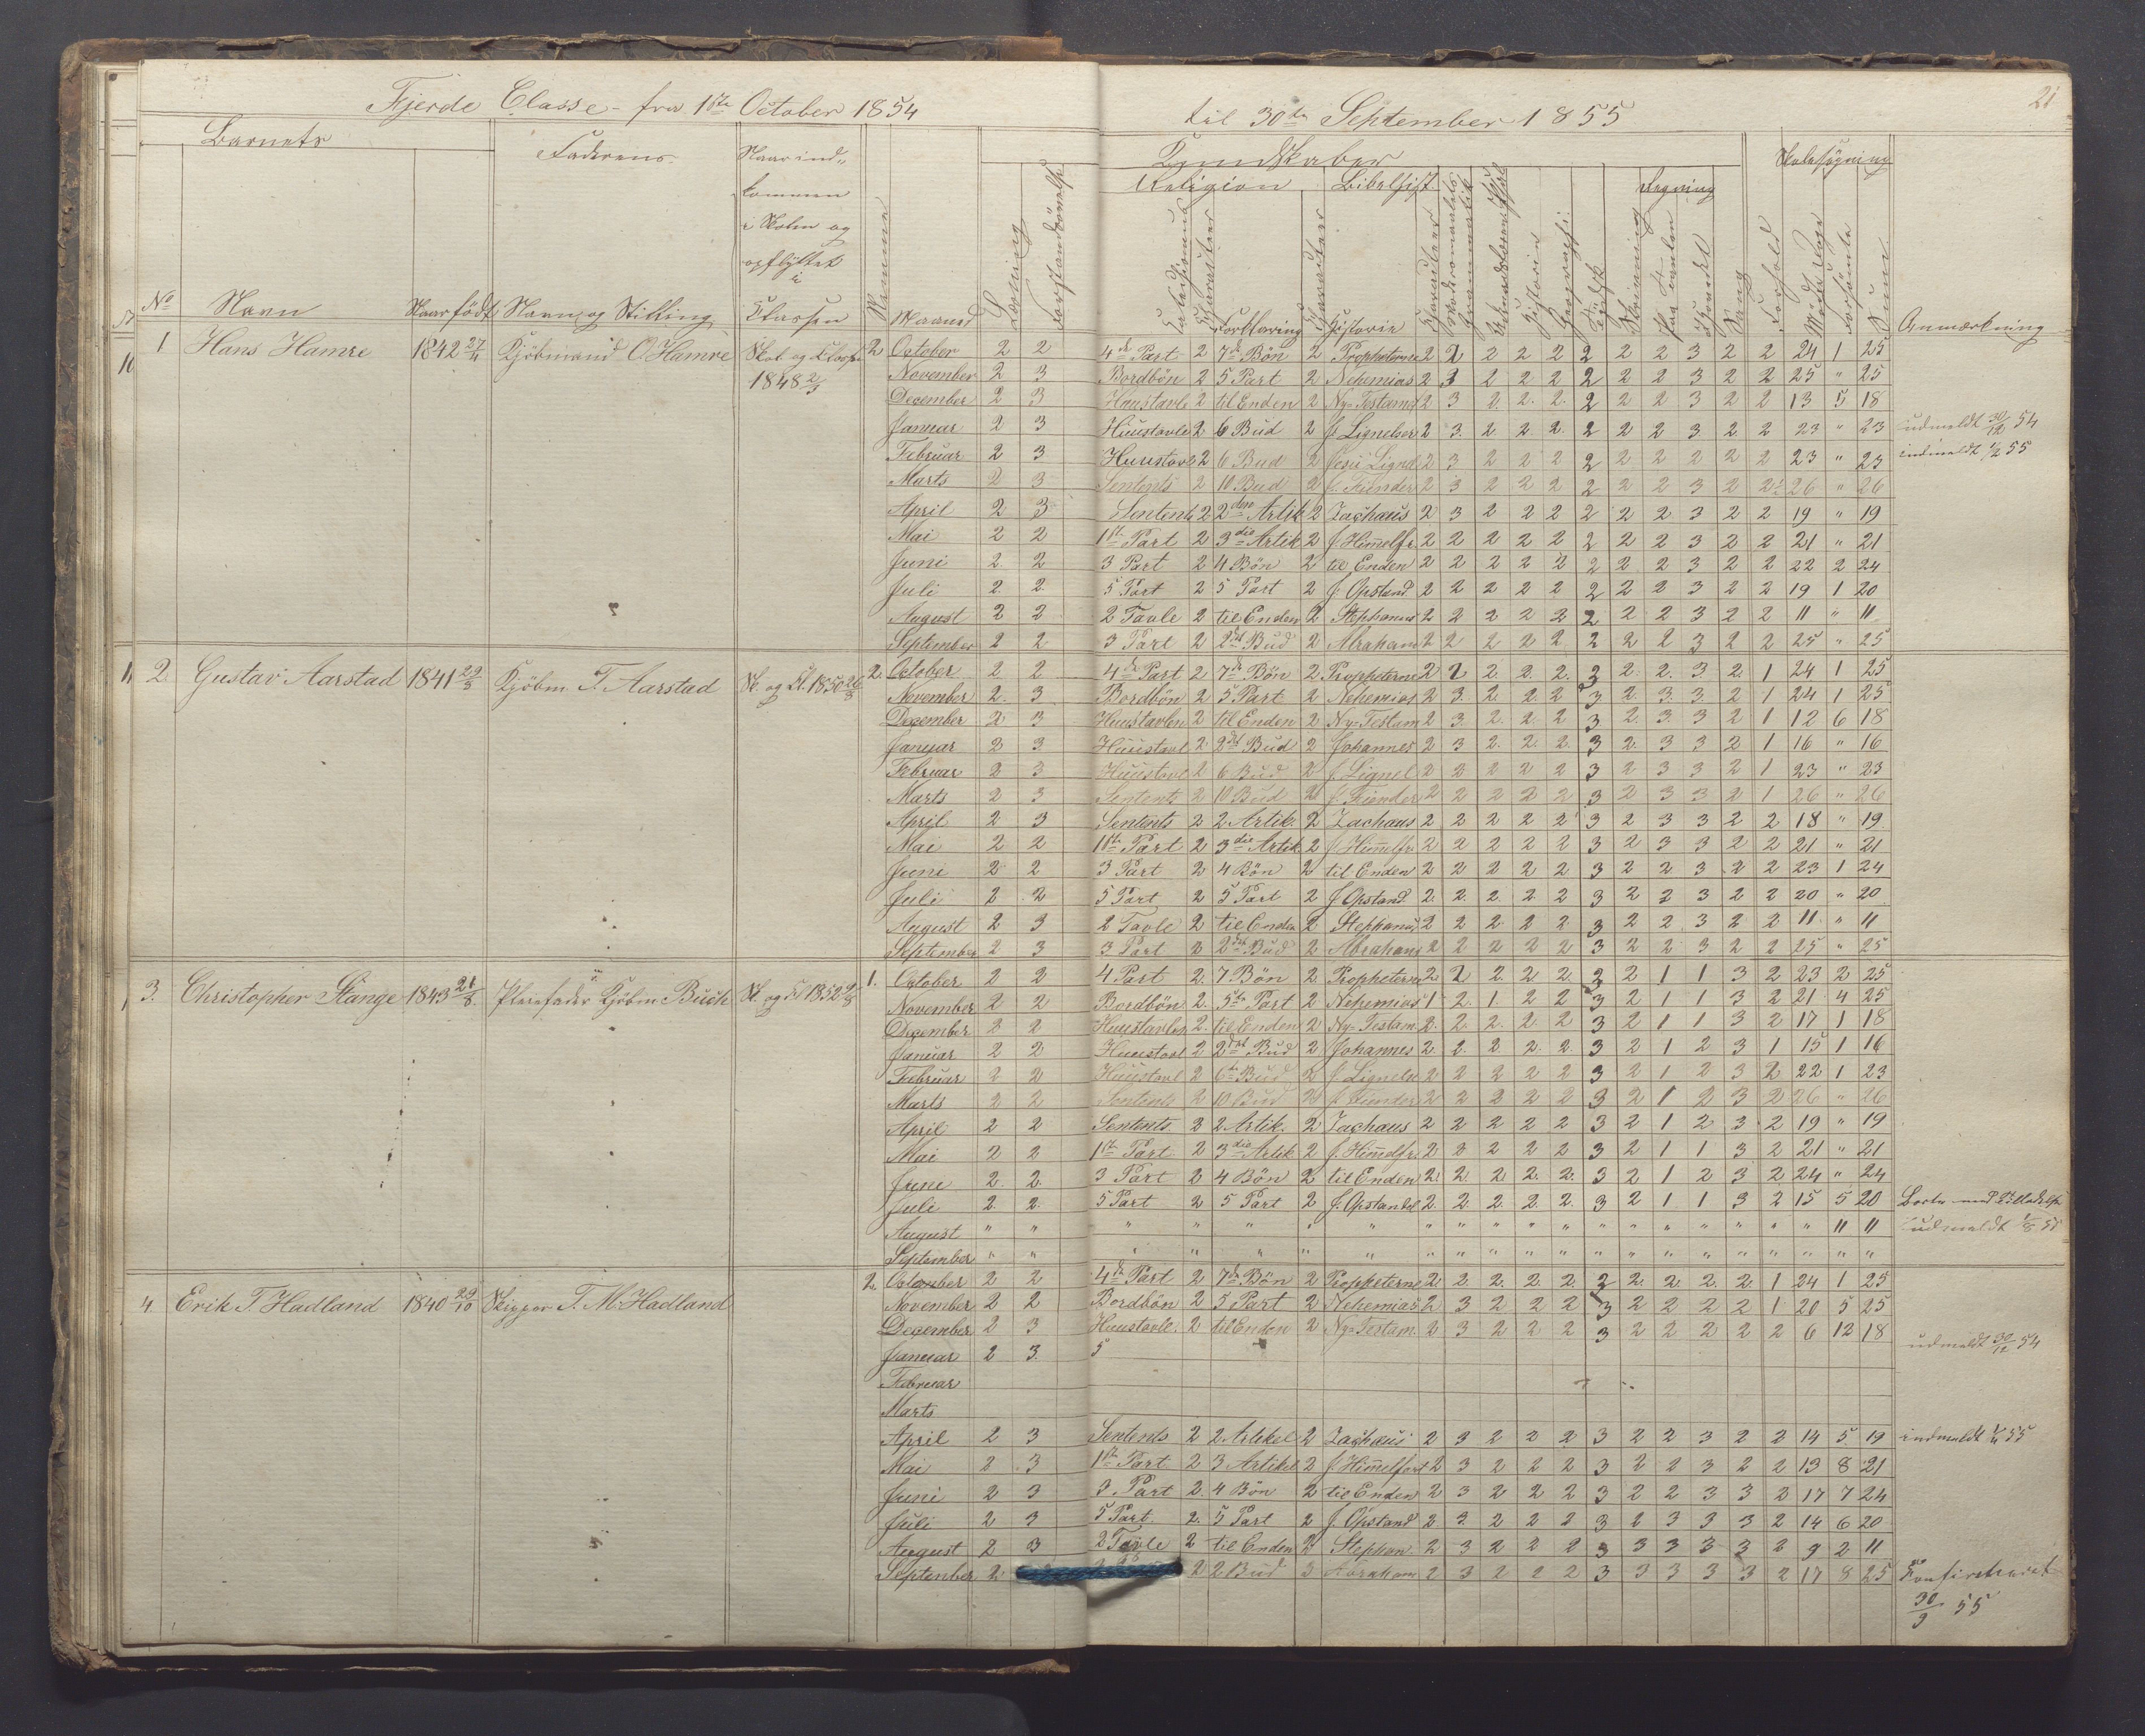 Fjerde Classe - fra 1ste October 1854 til 30te September 1855
21
Barnets Faderens Naar ind- Kundskaber Skolesøgning
kommen Religion Bibelhist Regning
i Skolen og
opflyttet
i
No Navn Naar født Navn og Stilling Classen Maaned Læsning Forklaring Historie Sang Forhold Forsømte Sum Anmærkning
1 Hans Hamre 1842 27/11 Kjöbmand O. Hamre Skol og Classe 2 October 2 2 4de Part 2 7de Bön 2 Propheterne 2 2 2 2 2 2 2 2 3 2 2 24 1 25
1848 2/3 November 2 3 Bordbön 2 5 Part 2 Nehemias 2 3 2 2 2 2 2 2 3 2 2 25 " 25
December 2 3 Huustavle 2 til Enden 2 Ny-Testam 2 3 2. 2. 2. 2 2 2 3 2 2 13 5 18
Januar 2 3 Huustavle 2 6 Bud 2 J. Lignelser 2 3. 2. 2. 2. 2 2 2 3 2 2 23 " 23 udmeldt 30/12 54
Februar 2 3 Huustavle 2 6 Bud 2 Jesu Lign 2 3 2 2 2 2 2 2 2 2 2 23 " 23 indmeldt 1/2 55
Marts 2 3 Sentents 2 10 Bud 2 J. Fiender 2 3 2 2 2 2 2 2 3 2 2 26 " 26
April 2 3 Sentents 2 2den Artik 2 Zachæus 2 3 2 2 2 2 2 2 3 2 2 19 " 19
Mai 2 2 1ste Part 2 3die Artik 2 J. Himelfr. 2 2 2 2 2 2 2 2 3 2 2 21 " 21
Juni 2 2 3 Part 2 4 Bön 2 til Enden 2 2 2 2 2 2 2 2 3 2 2 22 2 24
Juli 2 2 5 Part 2 5 Part 2 J. Opstand. 2 2 2 2 2 2 2 2 3 2 2 19 1 20
August 2 2 2 Tavle 2 til Enden 2 Stephanus 2 2 2 2 2 2 2 2 3 2 2 11 " 11
September 2 2 3 Part 2 2det Bud 2 Abraham 2 2 2 2 2 2 2 2 3 2 2 25 " 25
2 Gustav Aarstad 1841 29/3 Kjöbm. T. Aarstad Sk. og Kl. 1850 2. October 2 2 4de Part 2 7de Bön 2 Propheterne 2 2 2. 2. 2. 3 2. 2. 3. 2. 1 24 1 25
November 2 3 Bordbön 2 5 Part 2 Nehemias 2 3. 2. 2. 2 3 2. 3. 3. 2 1 24 1 25
December 2 3 Huustavlen 2 til Enden 2 Ny-Testam 2 3. 2. 2. 2 3 2. 3. 3. 2 1 12 6 18
Januar 2 3 Huustavl 2 2det Bud 2 Johannes 2 3 2. 2. 2. 3 2. 3 3 2 1 16 " 16
Februar 2 3 Huustavl 2 6 Bud 2 J. Lignel 2 2 2 2 2 3 2 3 3 2 1 23 " 23
Marts 2 3 Sentents 2 10 Bud 2 J. Fiender 2 2 2 2 2 3 2 3 3 2 1 26 " 26
April 2 3 Sentents 2 2 Artik. 2 Zachæus 2 2 2 2 2 3 2 3 3 2 2 18 " 19
Mai 2 2 1ste Part 2 3die Artik 2 J. Himelfr. 2 2 2 2 2 3 2 3 3 2 2 21 " 21
Juni 2 2 3 Part 2 4 Bön 2 til Enden 2 2 2 2 2 3 2 2 3 2 2 23 1 24
Juli 2 2 5 Part 2 5 Part 2 J. Opstand 2 2. 2. 2. 2 3 2 2 3 2 2 20 " 20
August 2 3 2 Tavle 2 til Enden 2 Stephanus 2 2 2 2 2 3 2 2 3 2 2 11 " 11
September 2 3 3 Part 2 2det Bud 2 Abraham 2 2 2 2 2 3 2 2 3 2 2 25 " 25
3. Christopher Stange 1843 21/8 Pleiefader Kjöbm. Buch Sk. og Kl 1852 1. October 2 2 4 Part 2. 7 Bön 2. Propheterne 2 2 2. 2 2. 3 2 1 1 3 2 23 2 25
November 2 2 Bordbön 2. 5te Part 2 Nehemias 1 2. 1. 2 2 3 2 1 1 3 2 21 4 25
December 2 2 Huustavlen 2. til Enden 2 Ny-Testam. 2. 2. 2. 2. 2 3 2 1 1 3 2 17 1 18
Januar 2 2 Huustavl 2 2det Bud 2 Johannes 2. 2. 2. 2. 2. 3 2 1 2 3 1 15 1 16
Februar 2 2 Huustavl 2 6te Bud 2 J. Lignels 2 2 2 2 2 3 2 1 2 3 2 22 1 23
Marts 2 2 Sentents 2 10 Bud 2 J. Fiender 2 2 2 2 2 3 2 1 2 3 2 26 " 26
April 2 2 Sentents 2 2 Artik. 2 Zachæus 2 2 2 2 2 3 2 1 2 3 2 19 " 19
Mai 2 2 1ste Part 2 3die Artik 2 J. Himelfr. 2 2 2 2 2 3 2 1 1 3 2 21 " 21
Juni 2. 2. 3 Part 2 4 Bön 2 til Enden 2. 2. 2. 2. 2. 3 2 1 2 3 2 24 " 24
Juli 2. 2. 5 Part 2 5 Part 2 J. Opstandel 2. 2. 2. 2. 2. 3 2 1 1 3 2 15 5 20 Borte med Tilladelse
August " " " " " " " " " " " " " " " " " " " 11 11 udmeldt 1/8 55
September " " " " " " " " " " " " " " " " " " " " "
4. Erik T. Hadland 1840 29/10 Skipper T. M. Hadland 2. October 2 2 4de Part 2 7de Bön 2 Propheterne 2. 2. 2. 2. 2. 3 2. 2. 2. 2. 1 24 1 25
November 2 2 Bordbön 2 5 Part 2 Nehemias 2 3 2 2 2 3 2 2 2 2 1 20 5 25
December 2 3 Huustavle. 2 til Enden 2 Ny-Testam. 2 3 2 2 2 3 2 2 2 2 2 6 12 18
Januar 2 3. 5 udmeldt 30/12 54
Februar
Marts
April 2 3 Sentents 2 2 Artikel 2 Zachæus 2 3 2 2 2 3 2 2 3 2 2 14 5 19 indmeldt 1/4 55
Mai 2 3 1ste Part 2 3 Artikel 2 J. Himelfart 2 3 2 2 2 3 2 2 3 2 2 13 8 21
Juni 2 3 3 Part 2 4 Bön 2 til Enden 2 3 2 2 2 3 2 2 3 3 2 17 7 24
Juli 2 3 5 Part. 2. 5 Part 2 J. Opstand 2 3. 2 2 2 3 2 3 3 3 2 14 6 20
August 2 3 2 Tavle 2 til Enden 2 Stephan. 2 3 2 2 2 3 3 3 3 3 2 9 2 11
September 2 2 2 Bud 2 Abraham 2 3 2 2 2 3 3 3 3 3 2 17 8 25 Konfirmeret
30/9 55